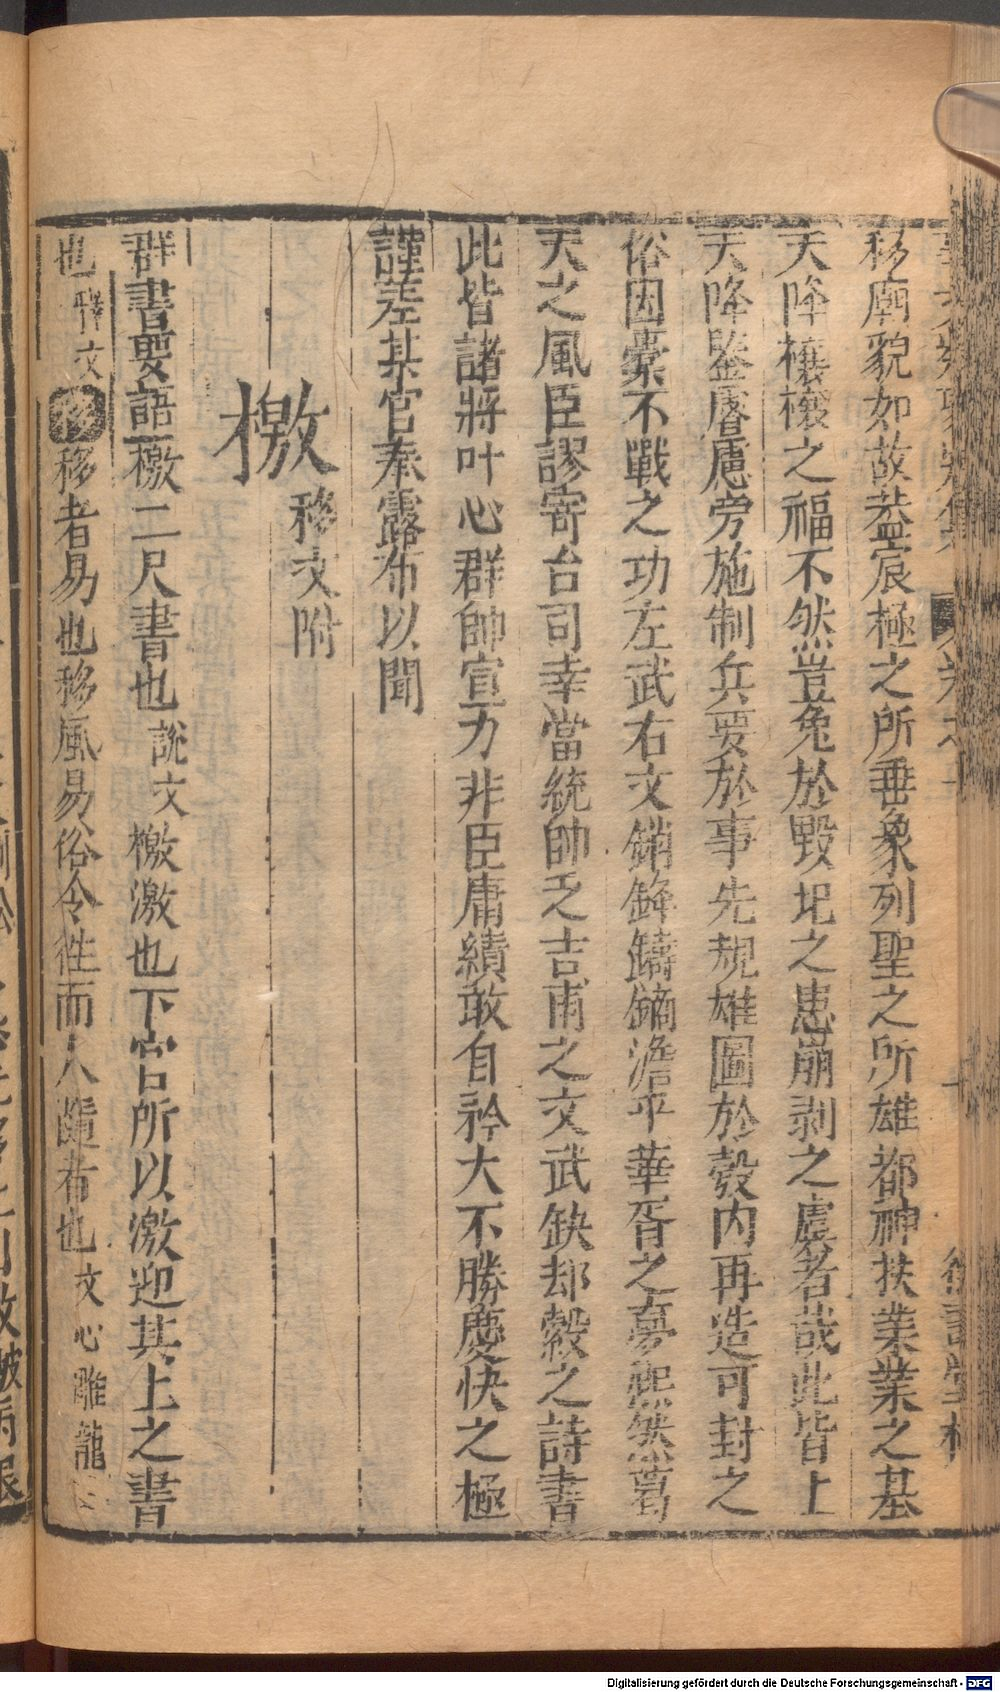 移廟貌如故葢宸極之所垂象列聖之所雄都神扶業業之基
天降穰穰之福不然豈免於毀圯之患崩剥之虞者哉此皆上
天降鑒睿慮旁施制兵要於事先規雄圖於彀内再造可封之
俗因槖不戰之功左武右文銷鋒鑄鏑澹乎華胥之夢熙然葛
天之風臣謬寄台司幸當統帥乏吉甫之文武缺却縠之詩書
此皆諸將叶心群帥宣力非臣庸績敢自矜大不勝慶快之極
謹差某官奉露布以聞
檄 移文附
群書要語 檄二尺書也 說文 檄激也下官所以激迎其上之書
也 釋文 移 移者易也移風易俗令徃而人隨者也 文心雕龍
Digitalisierung gefördert durch die Deutsche Forschungsgemeinschaft - DFG